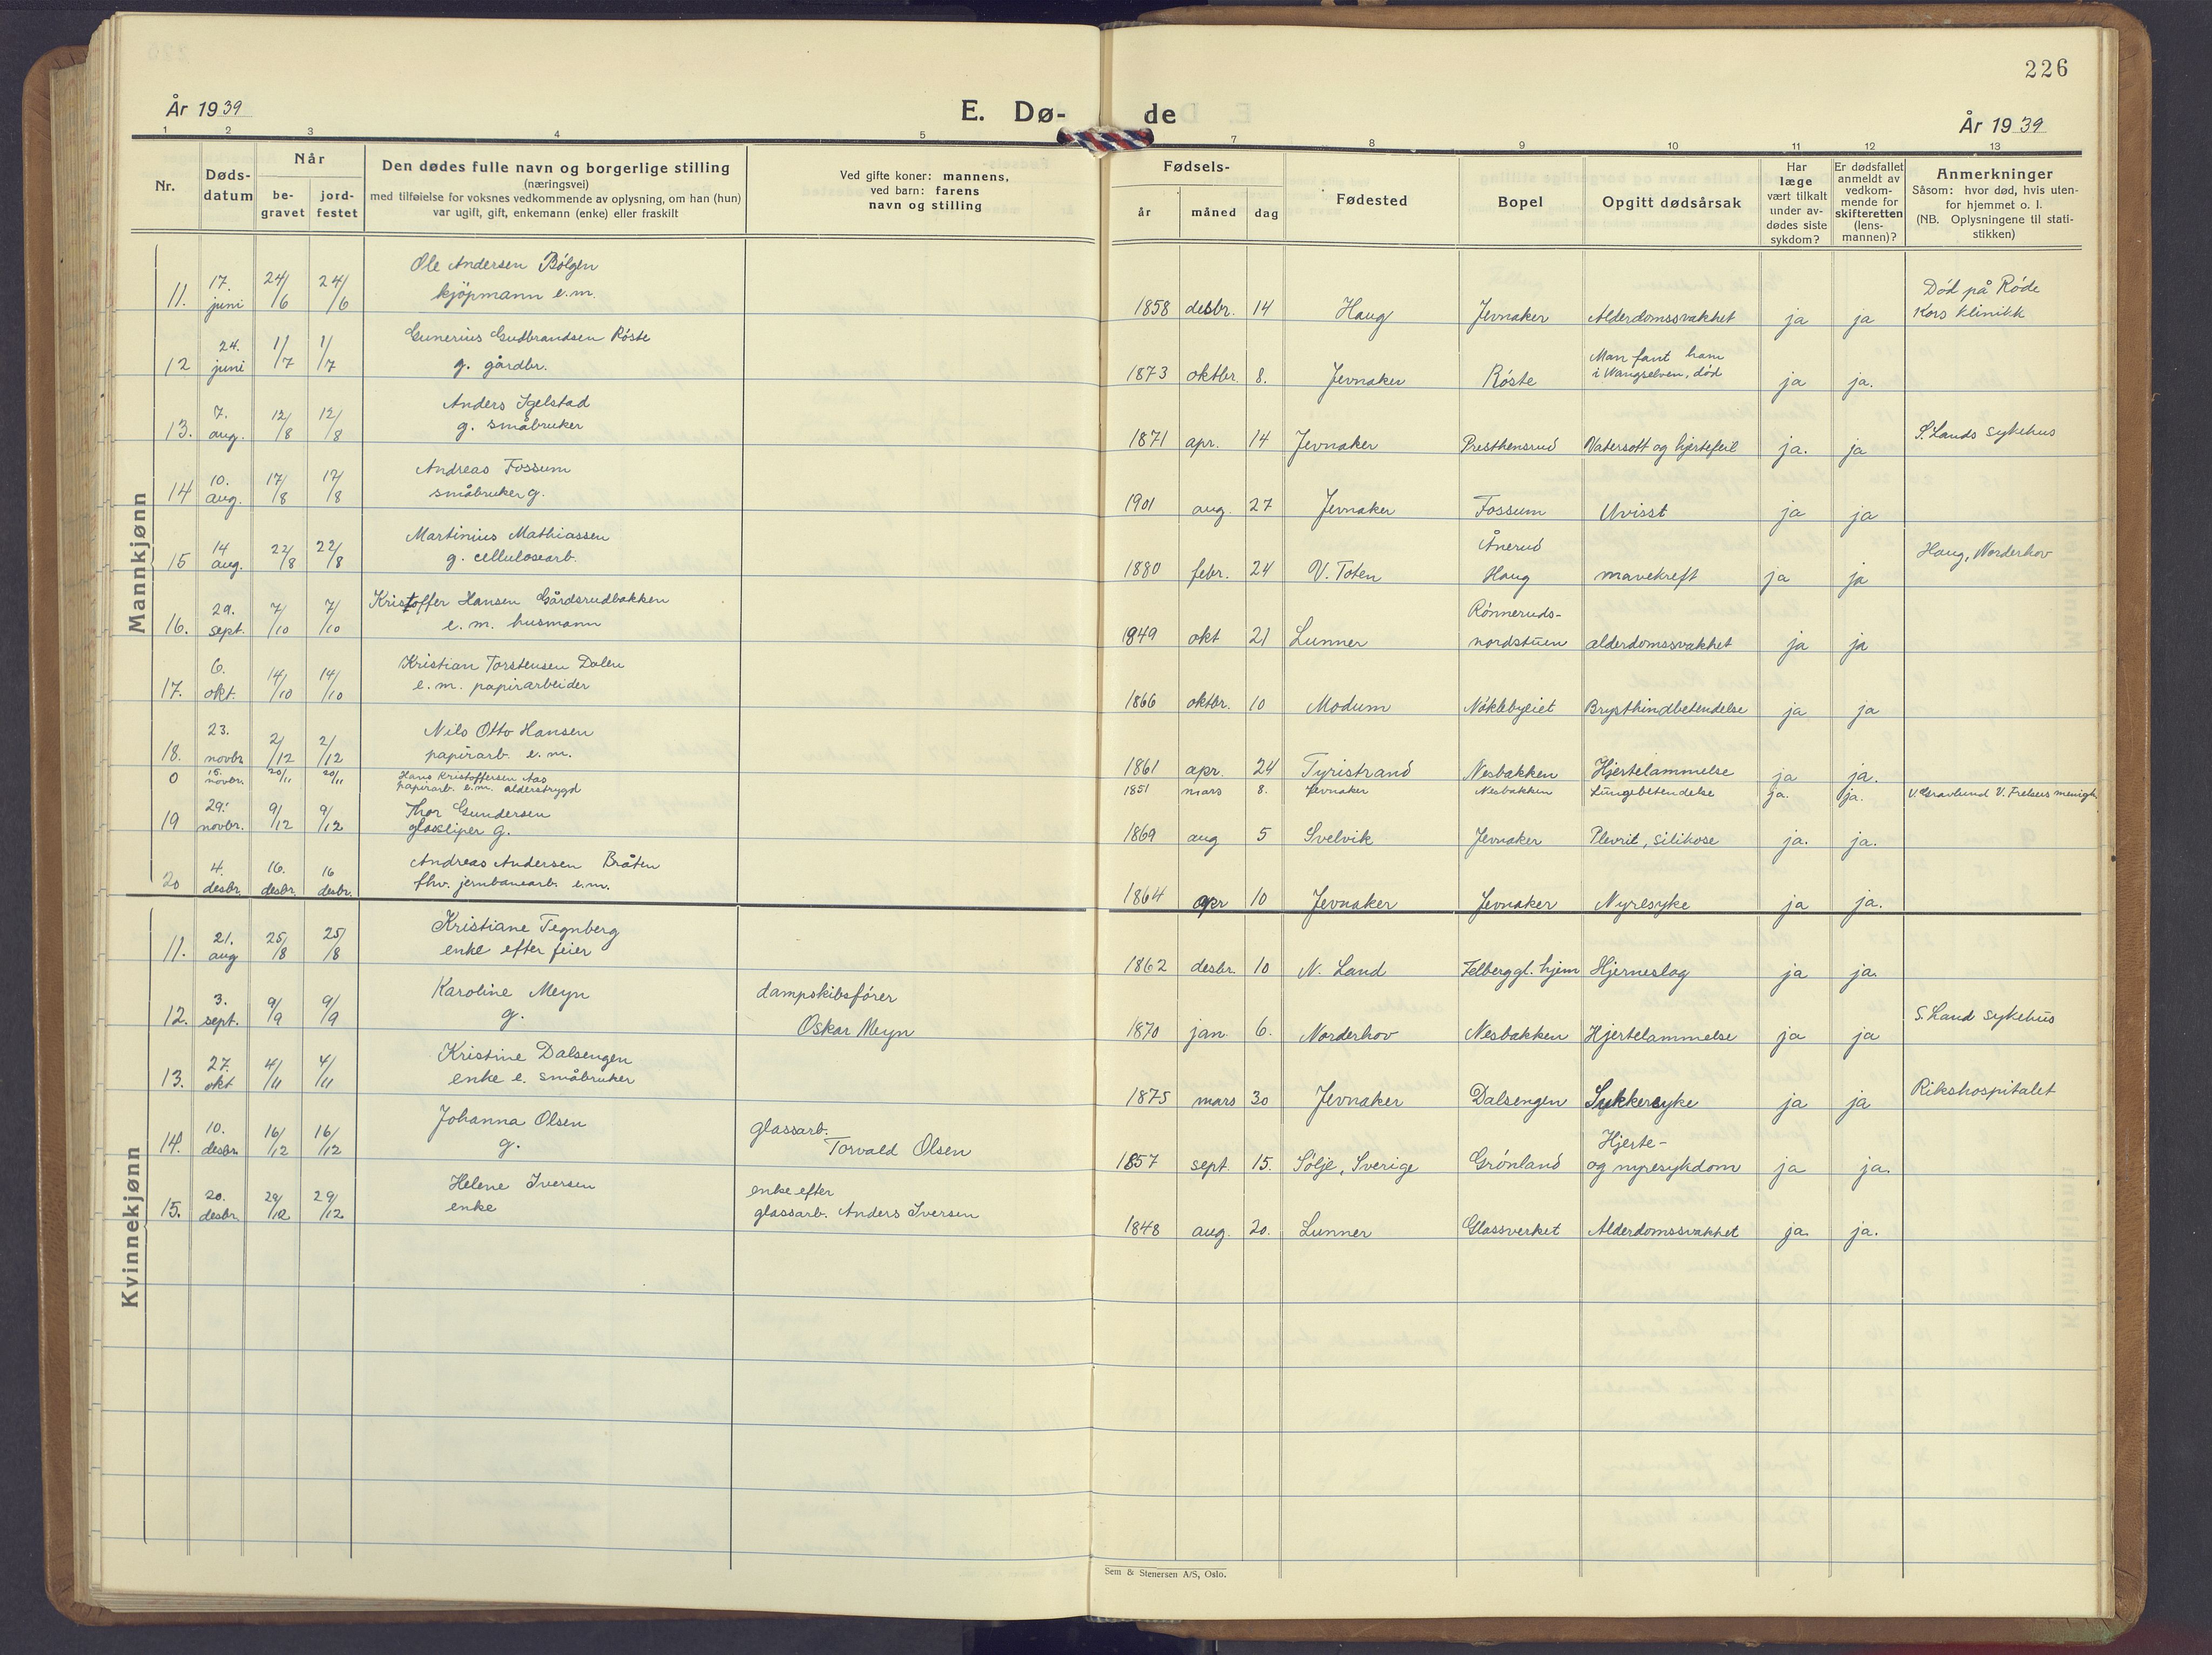 226
År 1939
E. Dø-de
År 1939
1 2 3 4 5 7 8 9 10 11 12 13
Nr.
Døds-datum
Når
be-gravet
jord-festet
Den dødes fulle navn og borgerlige stilling
(næringsvei)
med tilføielse for voksnes vedkommende av oplysning, om han (hun)
var ugift, gift, enkemann (enke) eller fraskilt
Ved gifte koner: mannens,
ved barn: farens
navn og stilling
Fødsels-
år måned dag
Fødested
Bopel
Opgitt dødsårsak
Har
læge
vært tilkalt
under av-
dødes siste
sykdom?
Er dødsfallet
anmeldt av
vedkom-
mende for
skifteretten
(lens-
mannen)?
Anmerkninger
Såsom: hvor død, hvis uten-
for hjemmet o. l.
(NB. Oplysningene til stati-
stikken)
Mannkjønn
11. 17. juni 24/6 24/6 Ole Andersen Bölgen kjöpmann e.m. 1858 desbr. 14 Haug Jevnaker Alderdomssvakhet ja ja Död på Röde Kors klinikk
12 24. juni 1/7 1/7 Gunerius Gudbrandsen Röste g. gårdbr. 1873 oktbr. 8. Jevnaker Röste Man fant ham i Vangselven, död ja ja.
13. 7. aug. 12/8 12/8 Anders Igelstad g. småbruker 1871 apr. 14 Jevnaker Presthensrud Vatersott og hjertefeil ja. ja S. Lands sykehus
14 10. aug. 17/8 17/8 Andreas Fossum småbruker g. 1901 aug. 27 Jevnaker Fossum Uvisst ja ja
15 14 aug. 22/8 22/8 Martinius Mathiassen g. cellulosearb. 1880 febr. 24 V. Toten Ånerud Haug mavekreft ja ja Haug, Norderhov
16. 29. sept. 7/10 7/10 Kristoffer Hansen Gårdsrudbakken e. m. husmann 1849 okt 21 Lunner Rönneruds-nordstuen alderdomssvakhet ja ja
17. 6. okt. 14/10 14/10 Kristian Torstensen Dalen e. m. papirarbeider 1866 oktbr. 10 Modum Nöklebyeiet Brysthindbetendelse ja ja
18. 23. novbr. 2/12 2/12 Nils Otto Hansen papirarb. e. m. 1861 apr. 24 Tyristrand Nesbakken Hjertelammelse ja ja.
0 15. novbr. 20/11 20/11 Hans Kristoffersen Aas papirarb. e.m. alderstrygd 1851 mars 8. Jevnaker Nesbakken Lungebetendelse ja. ja. V. Gravlund V. Frelsers menigh.
19 29. novbr. 9/12 9/12 Thor Gundersen glassliper g. 1869 aug 5 Svelvik Jevnaker Plevrit, silikose ja. ja.
20 4. desbr. 16. desbr. 16 desbr. Andreas Andersen Bråten fhv. jernbanearb. e.m. 1864 apr 10 Jevnaker Jevnaker Nyresyke ja ja.
Kvinnekjønn
11. 21. aug 25/8 25/8 Kristiane Tegnberg enke efter feier 1862 desbr. 10 N. Land Felberg gl. hjem Hjerneslag ja ja.
12. 3. sept. 9/9 9/9 Karoline Meyn g. dampskibsförer Oskar Meyn 1870 jan. 6. Norderhov Nesbakken Hjertelammelse ja ja S. Land sykehus
13. 27. okt 4/11 4/11 Kristine Dalsengen enke e. småbruker 1875 mars 30 Jevnaker Dalsengen Sykkersyke ja ja Rikshospitalet
14. 10. desbr. 16/12 16/12 Johanna Olsen g. glassarb. Torvald Olsen 1857 sept. 15. Sölje, Sverige Grönland Hjerte- og nyresykdom ja ja.
15. 20. desbr. 29/12 29/12 Helene Iversen enke enke efter glassarb. Anders Iversen 1848 aug. 20. Lunner Glassverket Alderdomssvakhet ja. ja.
Sem & Stenersen A/S, Oslo.